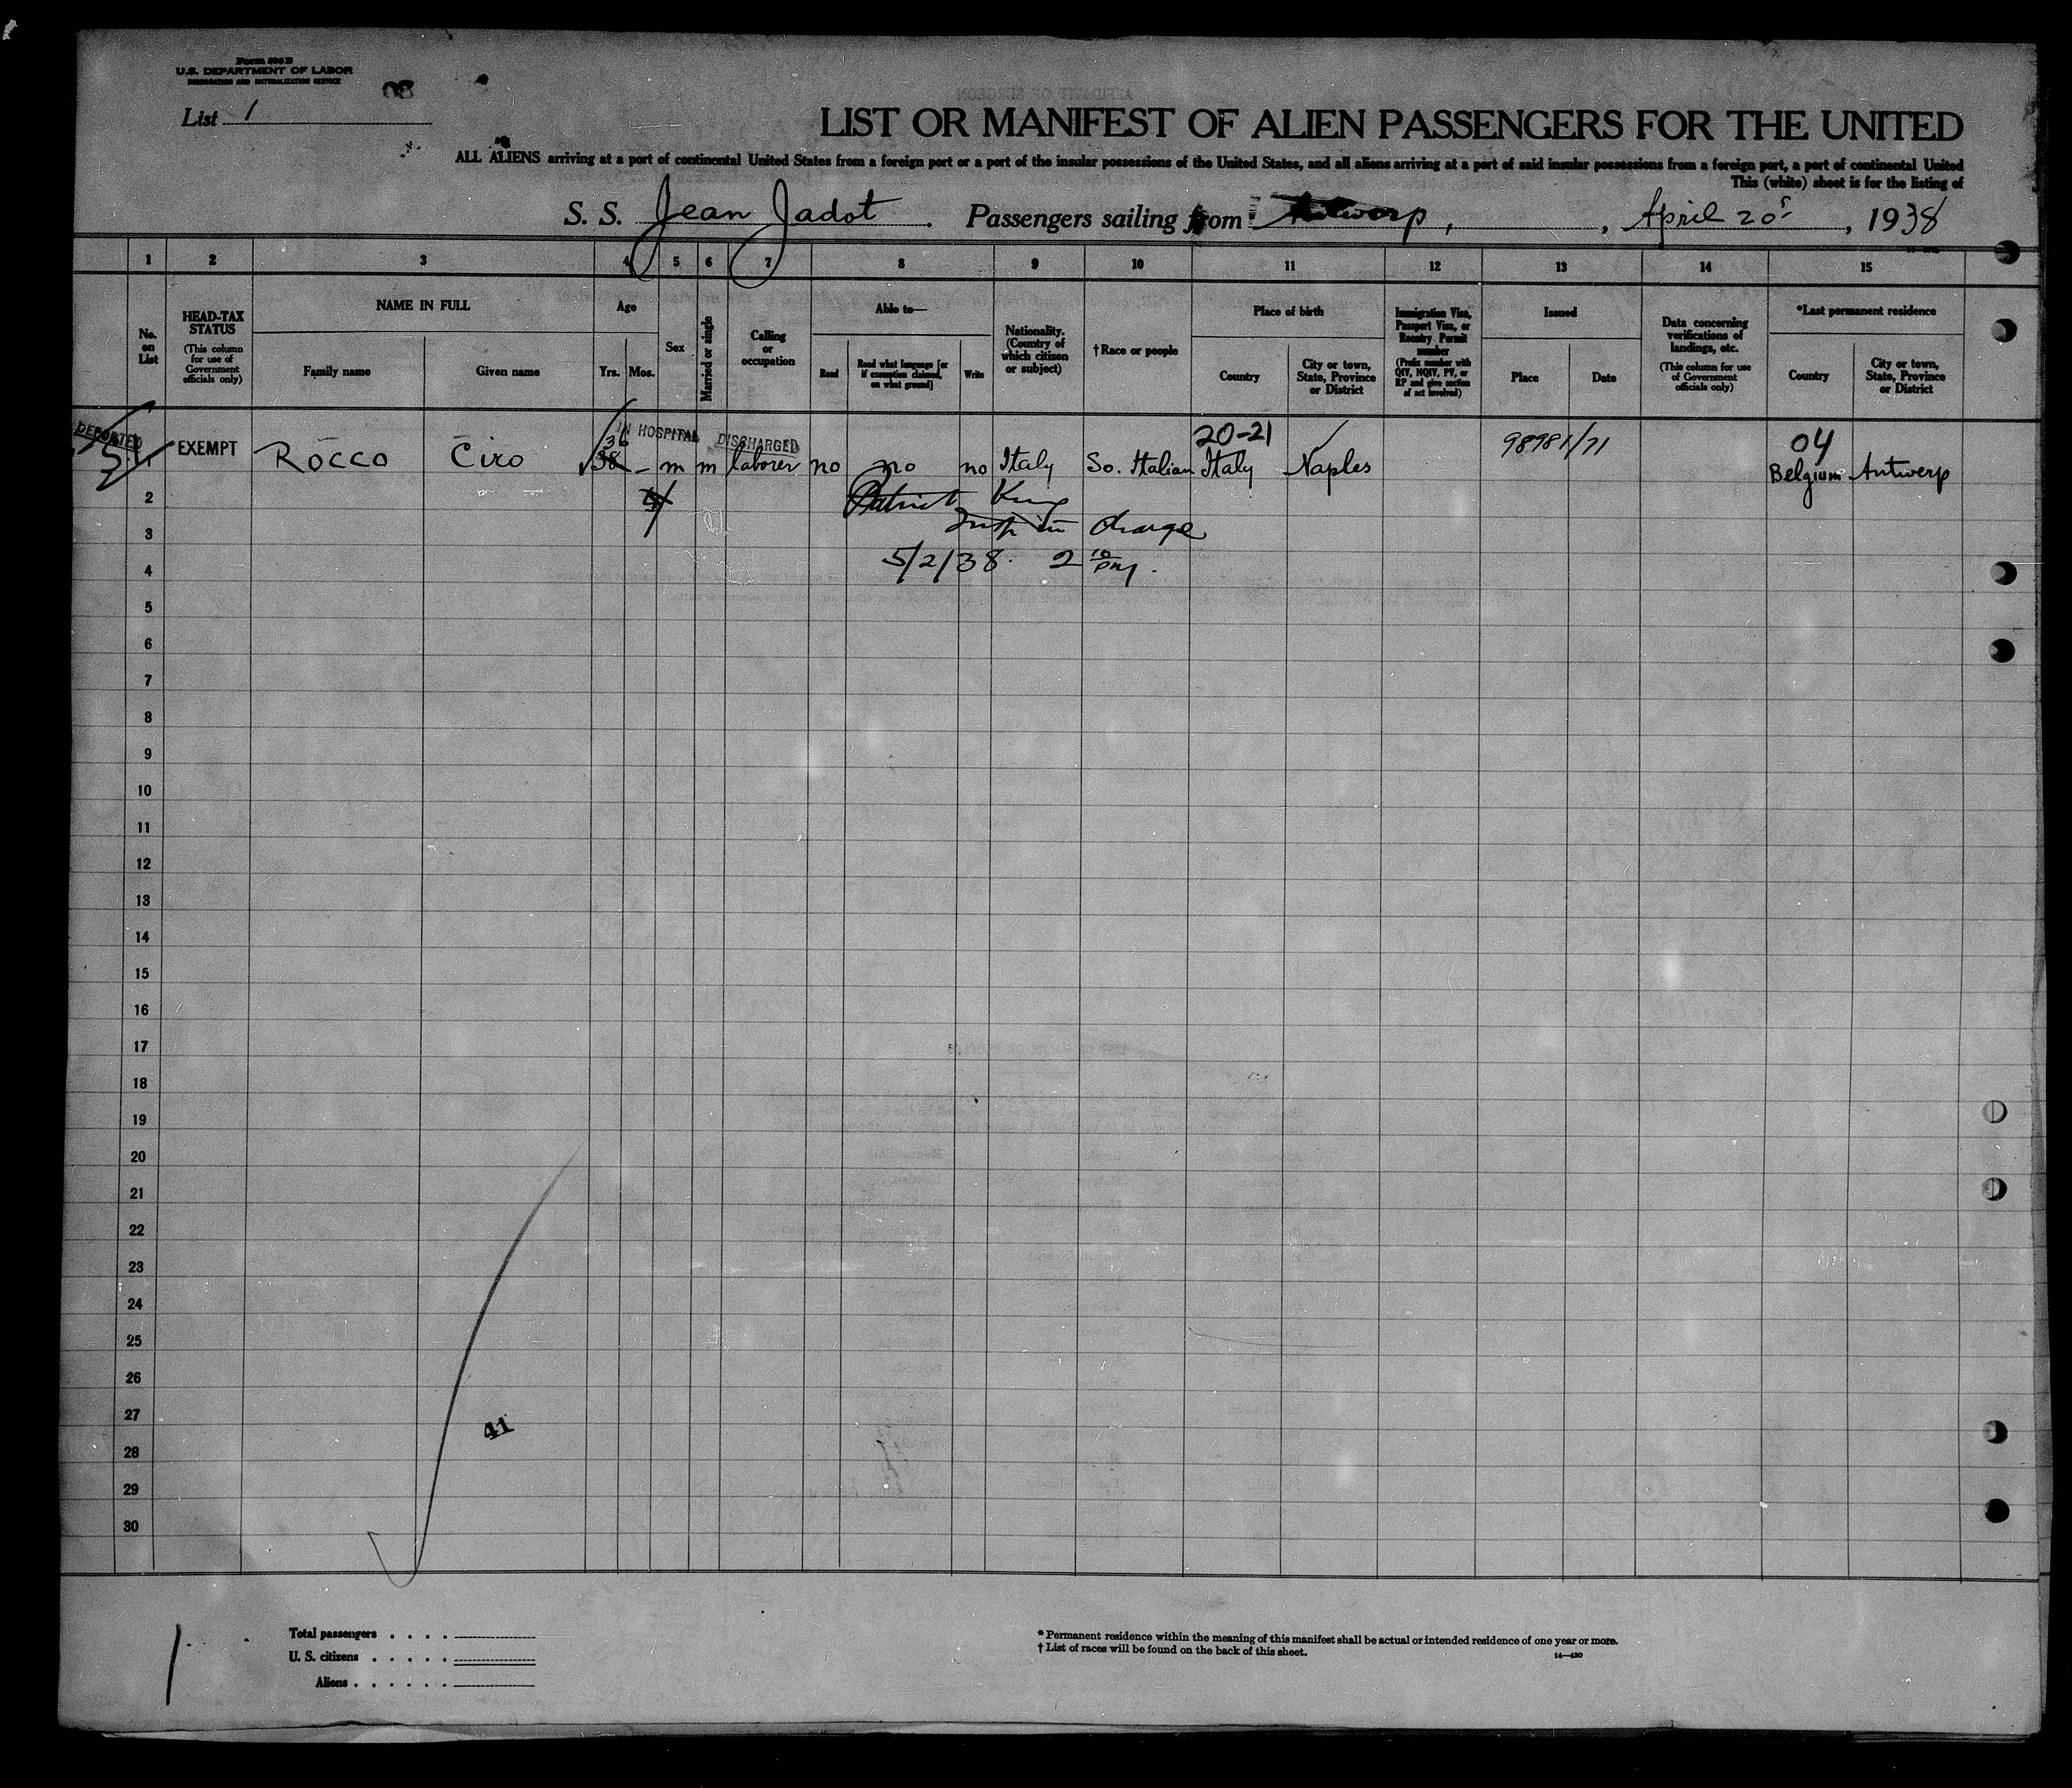 Form 500 B
U.S. DEPARTMENT OF LABOR
IMMIGRATION AND NATURALIZATION SERVICE
List 1
LIST OR MANIFEST OF ALIEN PASSENGERS FOR THE UNITED
ALL ALIENS arriving at a port of continental United States from a foreign port or a port of the insular possessions of the United States, and all aliens arriving at a port of said insular possessions from a foreign port, a port of continental United
This (white) sheet is for the listing of
S. S. Jean Jadot. Passengers sailing from Antwerp, , April 20, 1938
1 2 3 4 5 6 7 8 9 10 11 12 13 14 15
No. on List
HEAD-TAX STATUS
(This column for use of Government officials only)
NAME IN FULL
Family name
Given name
Age
Yrs. Mos.
Sex
Married or single
Calling or occupation
Able to—
Read
Read what language [or if exemption claimed, on what ground]
Write
Nationality. (Country of which citizen or subject)
†Race or people
Place of birth
Country
City or town, State, Province or District
Immigration Visa, Passport Visa, or Reentry Permit number
(Prefix number with QIV, NQIV, PV, or RP and give section of act involved)
Issued
Place
Date
Data concerning verifications of landings, etc.
(This column for use of Government officials only)
*Last permanent residence
Country
City or town, State, Province or District
DEPORTED
IN HOSPITAL DISCHARGED 20-21 98981/71 04
1 EXEMPT Rocco Ciro 36 38 - m m laborer no no no Italy So. Italian Italy Naples Belgium Antwerp
2 Patrick King
3 Insp in charge
4 5/2/38. 2 10 PM.
5
6
7
8
9
10
11
12
13
14
15
16
17
18
19
20
21
22
23
24
25
26
27
41
28
29
30
Total passengers . . . .
U. S. citizens . . . . .
Aliens . . . . . .
* Permanent residence within the meaning of this manifest shall be actual or intended residence of one year or more.
† List of races will be found on the back of this sheet.
14—430